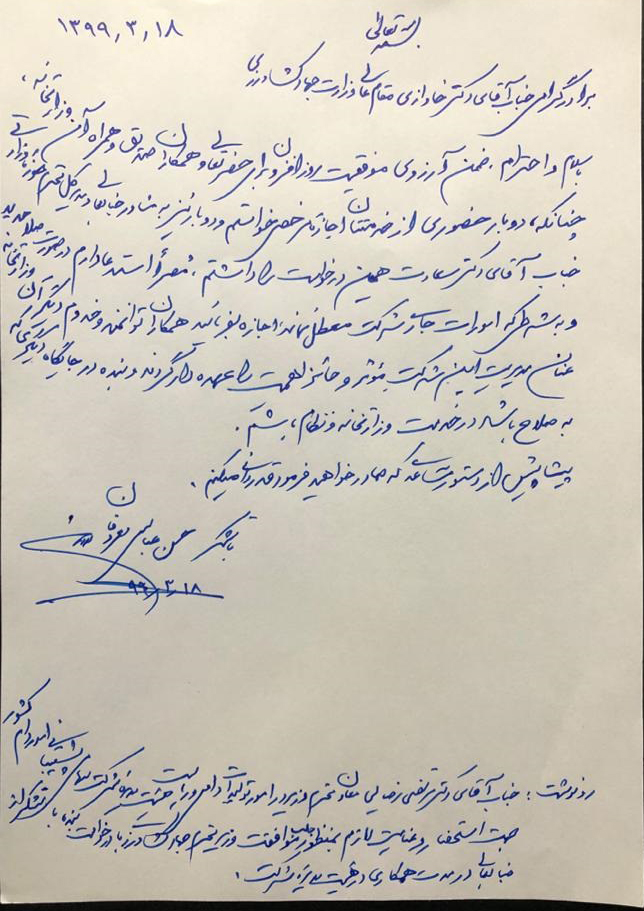 بسمه تعالی
۱۳۹۹،۳،۱۸
برادر گرامی جناب آقای دکتر خاوازی مقام عالی وزارت جهاد کشاورزی
با سلام و احترام، ضمن آرزوی موفقیت روزافزون برای حضرتعالی و همکاران صدیق و همراه آن وزارتخانه،
چنانکه، دو بار حضوری از خدمتتان اجازه مرخصی خواستم و دو بار نیز به مشاور جنابعالی و مدیرکل محترم حوزه وزارتی
جناب آقای دکتر سعادت همین درخواست را داشتم، مُصراً استدعا دارم در صورت صلاحدید
و به شرطی که امورات جاری شرکت معطل نماند، اجازه بفرمائید همکاران توانمند و خدوم دیگر آن وزارتخانه
عنان مدیریت این شرکت مؤثر و حائز اهمیت را عهده‌دار گردند و بنده در جایگاه دیگری که
به صلاح باشد در خدمت وزارتخانه و نظام باشم.
پیشاپیش از دستور مساعد که صادر خواهید فرمود قدردانی میکنم.
با تشکر حسن عباسی معروفان
۹۹،۳،۱۸
رونوشت: جناب آقای دکتر مرتضی رضایی معاون محترم وزیر در امور تولیدات دامی و ریاست هیئت مدیره شرکت سهامی پشتیبانی امور دام کشور
جهت استحضار و عنایت لازم بمنظور جلب موافقت وزیر محترم جهاد کشاورزی با درخواست بنده با تشکر از
جنابعالی در مدت همکاری در هیئت مدیره شرکت.